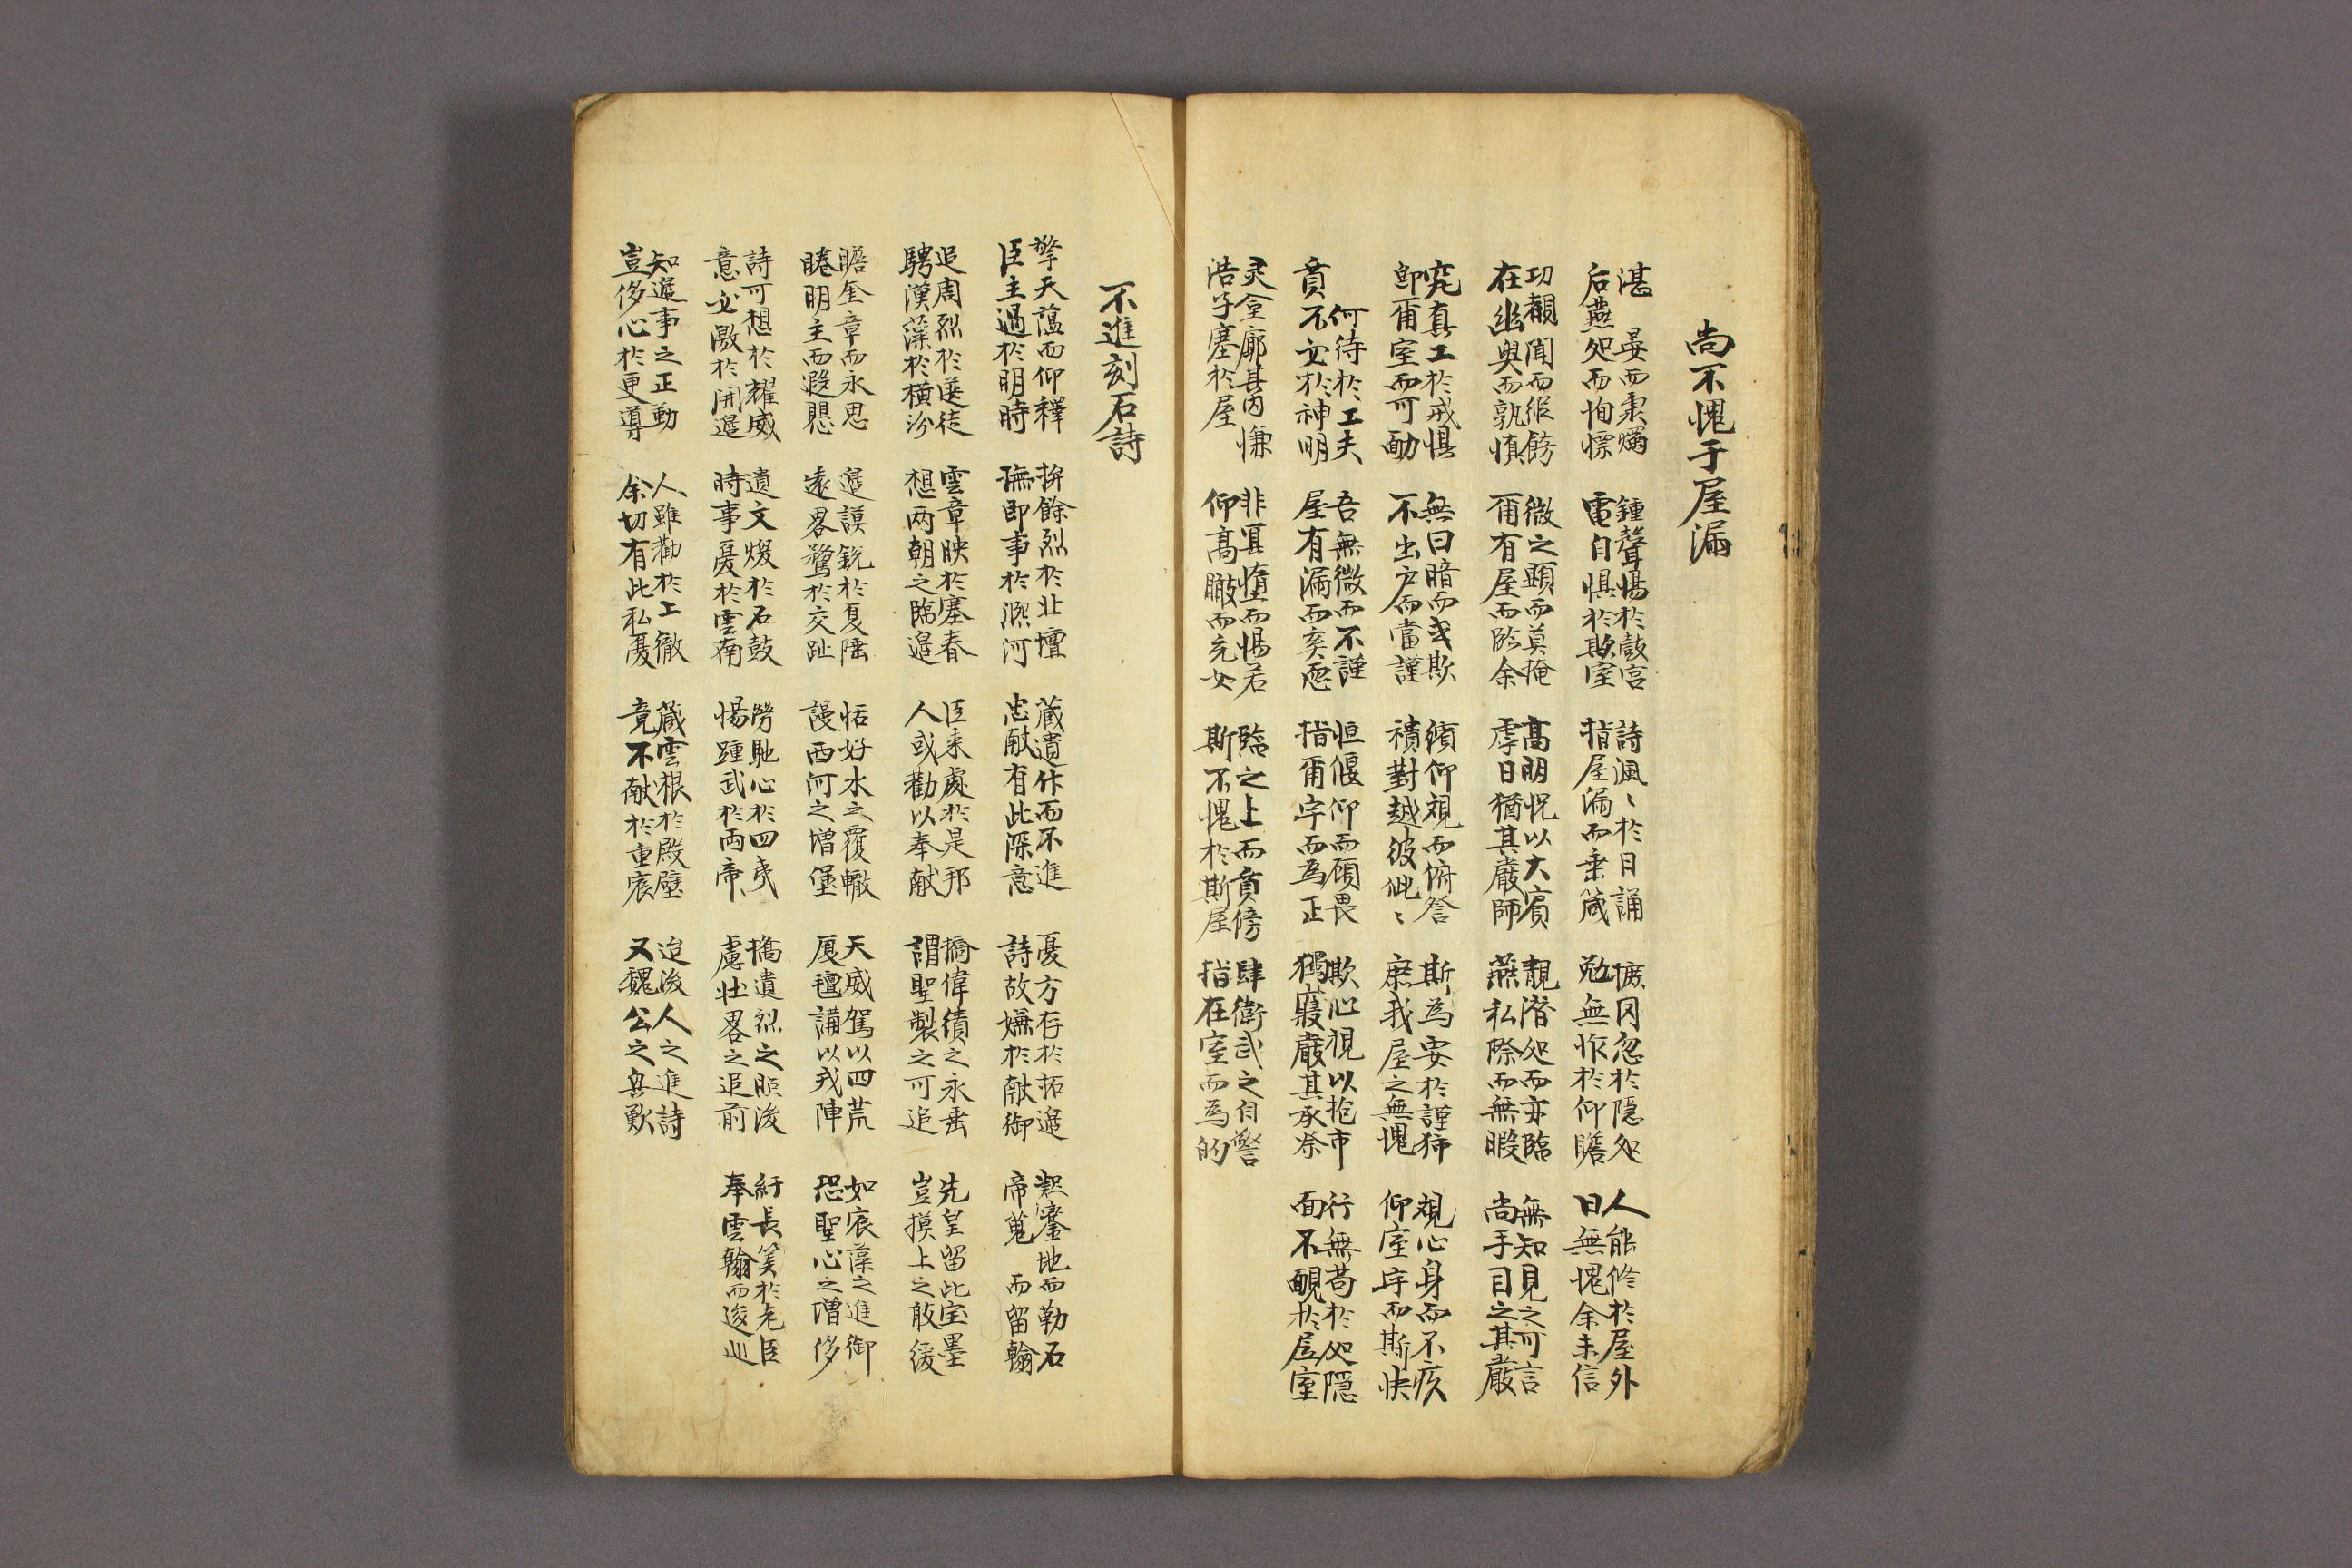 尚不愧于屋漏
湛晏而秉燭
后燕処而恂慄
鍾聲惕於鼓宮
電自惧於欺室
詩渢〻於日誦
指屋漏而垂箴
擴罔忽於隱処
勉無怍於仰瞻
人能修於屋外
曰無愧余未信
功覩聞而
在幽奧而孰慎
微之顯而莫掩
爾有屋而臨余
高明怳以大賓
虖日猶其嚴師
靚潛処而亦臨
燕私際而無暇
無知見之可言
尚手目之其嚴
究真工於戒惧
卽爾室而可勖
無曰暗而或欺
不出戶而當謹
繽仰視而俯答
積對越彼此〻
斯為要於謹獨
庶我屋之無愧
視心身而不疚
仰屋宇而斯快
何待於工夫
賁不文於神明
吾無微而不謹
屋有漏而奚恧
恒偃仰而顧畏
指爾宇而為正
欺心視以抱市
獨寢嚴其承祭
行無苟於処隱
面不靦於居室
灵坌廓其內慊
浩乎塞於屋
非冥墮而惕若
仰高瞰而充女
臨之上而質傍
斯不愧於斯屋
肆衛武之自警
指在室而為的
不進刻石詩
擎天蕰而仰釋
臣主遇於明時
拚餘烈於北壇
撫即事於熙河
藏遺作而不進
忠献有此深意
憂方存於拓邊
詩故嫌於献御
契寥地而勒石
帝蒐而留翰
追周烈於蒐徒
騁漢藻於橫汾
雲章映於塞春
想两朝之臨邊
臣来處於是邦
人或勸以奉献
摛偉績之永垂
謂聖製之可追
先皇留此宝墨
豈摸上之敢緩
瞻奎章而永思
睠明主而遐想
邊謨銳於夏陲
遠畧騖於交趾
恬好水之覆轍
謾西河之增堡
天威駕以四荒
厦氊講以我陣
如宸藻之進御
恐聖心之增侈
詩可想於耀威
意必激於開邊
遺文煥於石鼓
時事憂於雲南
勞馳心於四夷
惕踵武於两帝
摛遺烈之照後
慮壯畧之追前
紆長箋於老臣
奉雲翰而逡巡
知邊事之正動
豈侈心於更導
人雖勸於上徹
余切有此私憂
蔵雲根於殿壁
竟不献於重宸
迨後人之進詩
又魏公之興歎